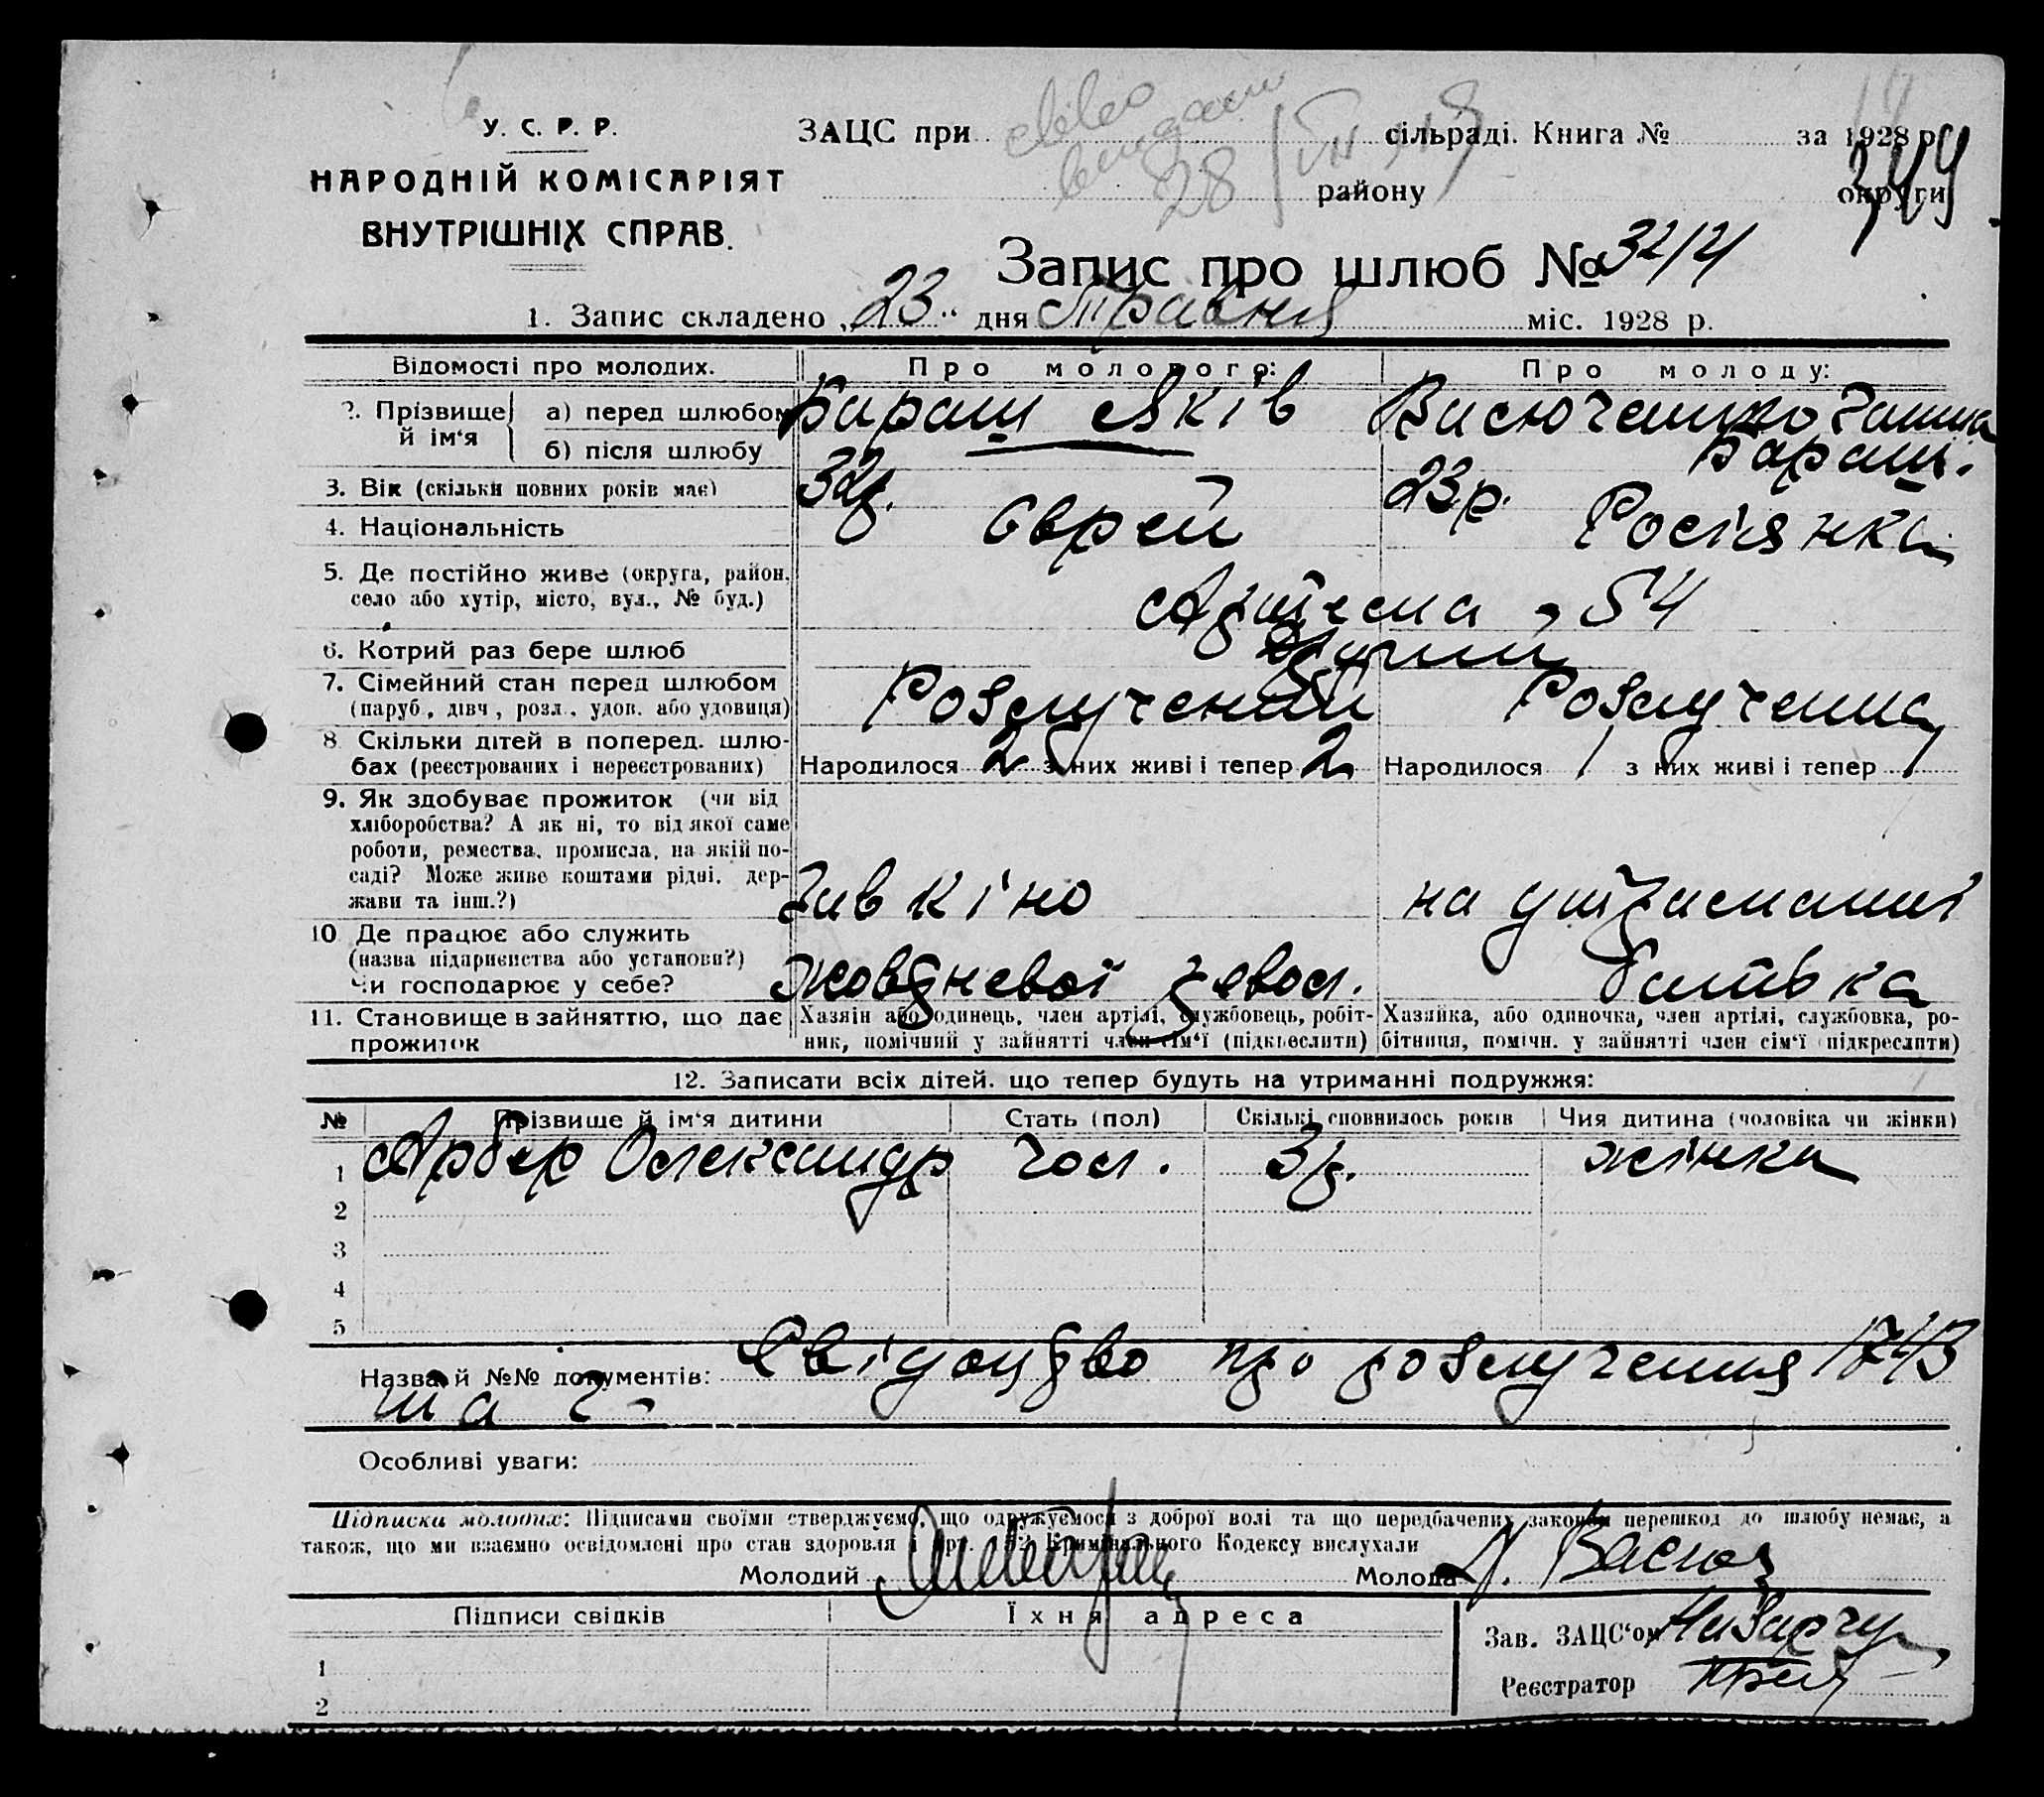 У. С. Р. Р.
НАРОДНІЙ КОМІСАРІЯТ
ВНУТРІШНІХ СПРАВ.
ЗАЦС при сільраді. Книга № за 1928 р
28 району округи
344
Запис про шлюб № 3214
1. Запис складено „23“ дня Травня міс. 1928 р.
Відомості про молодих. Про молодого: Про молоду:
2. Прізвище й ім‘я а) перед шлюбом Бараш Яків Васюченко Ганна
б) після шлюбу Бараш.
3. Вік (скільки повних років має) 32р. 23р.
4. Національність Єврей Росіянка
5. Де постійно живе (округа, район,
село або хутір, місто, вул., № буд.) Артема, 54
6. Котрий раз бере шлюб Другий
7. Сімейний стан перед шлюбом
(паруб, дівч, розл., удов. або удовиця) Розлучений Розлученна
8. Скільки дітей в поперед. шлю-
бах (реєстрованих і нереєстрованих) Народилося 2 з них живі і тепер 2 Народилося 1 з них живі і тепер 1
9. Як здобуває прожиток (чи від
хліборобства? А як ні, то від якої саме
роботи, ремества, промисла, на якій по-
саді? Може живе коштами рідні, дер-
жави та інш.?) Зав кіно на утриманні
10. Де працює або служить
(назва підприєнства або установи?)
Чи господарює у себе? Жовтневої револ. батька
11. Становище в зайняттю, що дає
прожиток
Хазяін або одинець, член артілі, службовець, робіт-
ник, помічний у зайнятті член сім‘ї (підкреслити)
Хазяйка, або одиночка, член артілі, службовка, ро-
бітниця, помічн. у зайнятті член сім‘ї (підкреслити)
12. Записати всіх дітей, що тепер будуть на утриманні подружжя:
№ Прізвище й ім‘я дитини Стать (пол) Скількі сповнилось років Чия дитина (чоловіка чи жінки)
1 Арбер Олександр Чол. 3р. жінки
2
3
4
5
Назва й №№ документів: Свідоцтво про розлучення 1743
та
Особливі уваги:
Підписи молодих: Підписами своїми стверджуємо, що одружуємося з доброї волі та що передбачених законом перешкод до шлюбу немає, а
також, що ми взаємно освідомлені про стан здоровля і арт. Кримінального Кодексу вислухали
Молодий Молода
Підписи свідків Їхня адреса
Зав. ЗАЦС‘ом
1
Реєстратор
2